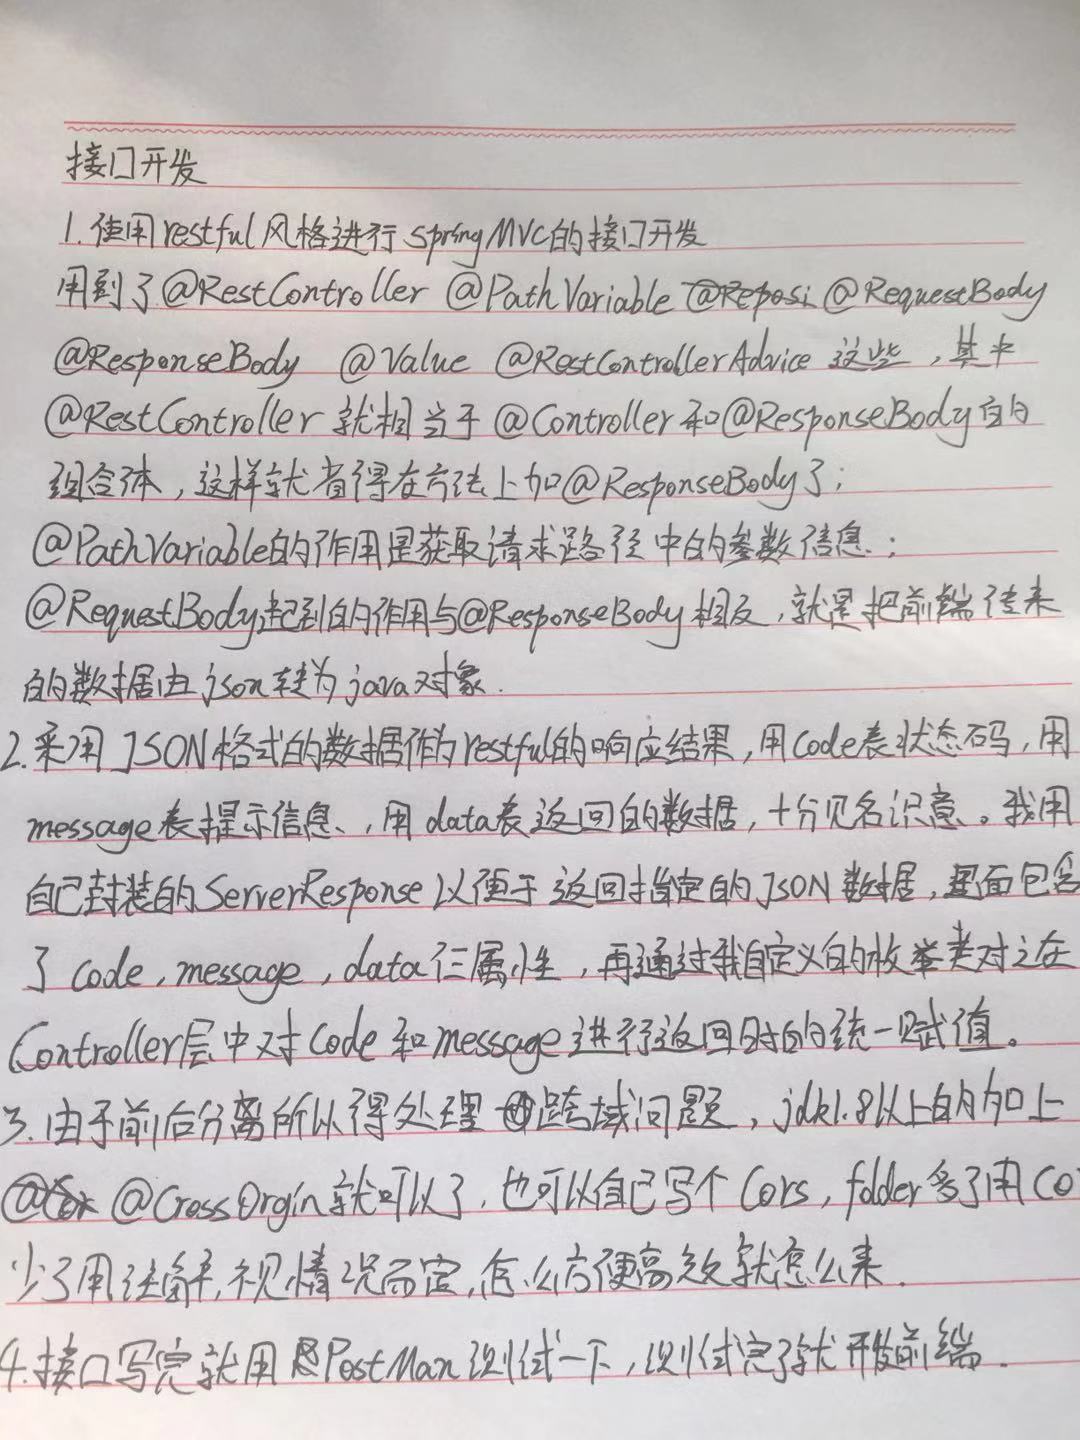 接口开发
1.使用restful风格进行springMVC的接口开发
用到了@RestController @PathVariable @Reposi @RequestBody
@ResponseBody @Value @RestControllerAdvice 这些,其中
@RestController 就相当于@Controller和@ResponseBody的
组合体,这样就省得在方法上加@ResponseBody了;
@PathVariable的作用是获取请求路径中的参数信息;
@RequestBody起到的作用与@ResponseBody相反,就是把前端传来
的数据由json转为java对象.
2.采用JSON格式的数据作为restful的响应结果,用code表状态码,用
message表提示信息,用data表返回的数据,十分见名识意。我用
自己封装的ServerResponse以便于返回指定的JSON数据,里面包含
了code,message,data仨属性,再通过我自定义的枚举类对之在
Controller层中对code和message进行返回时的统一赋值。
3.由于前后分离所以得处理跨域问题,jdk1.8以上的加上
@Cor @CrossOrgin就可以了,也可以自己写个Cors,folder多了用CO
少了用注解,视情况而定,怎么方便高效就怎么来.
4.接口写完就用PostMan测试一下,测试完了就开发前端.